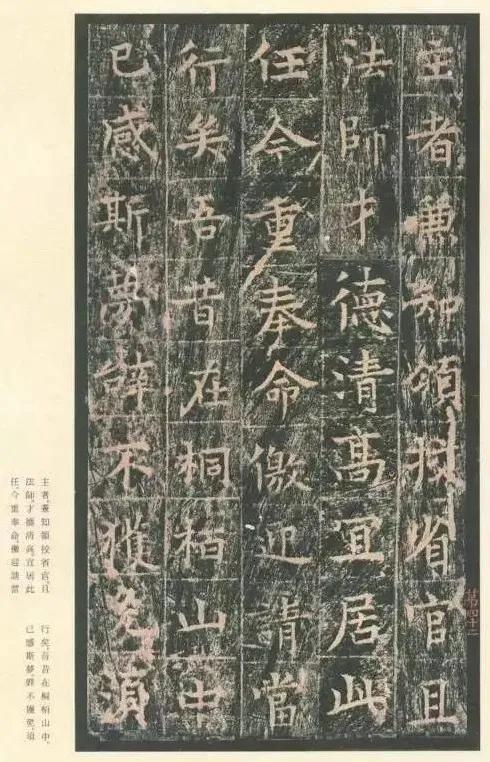 主者兼知領挍省官且
法師才德清髙冝居此
任今重奉命儌迎請當
行矣吾昔在桐栢山中
已感斯夢辭不獲免湏
主者、兼知領校省官、且
法師、才德清高、宜居此
任。今重奉命、儌迎請當
行矣。吾昔在桐栢山中、
已感斯夢、辭不獲免、須